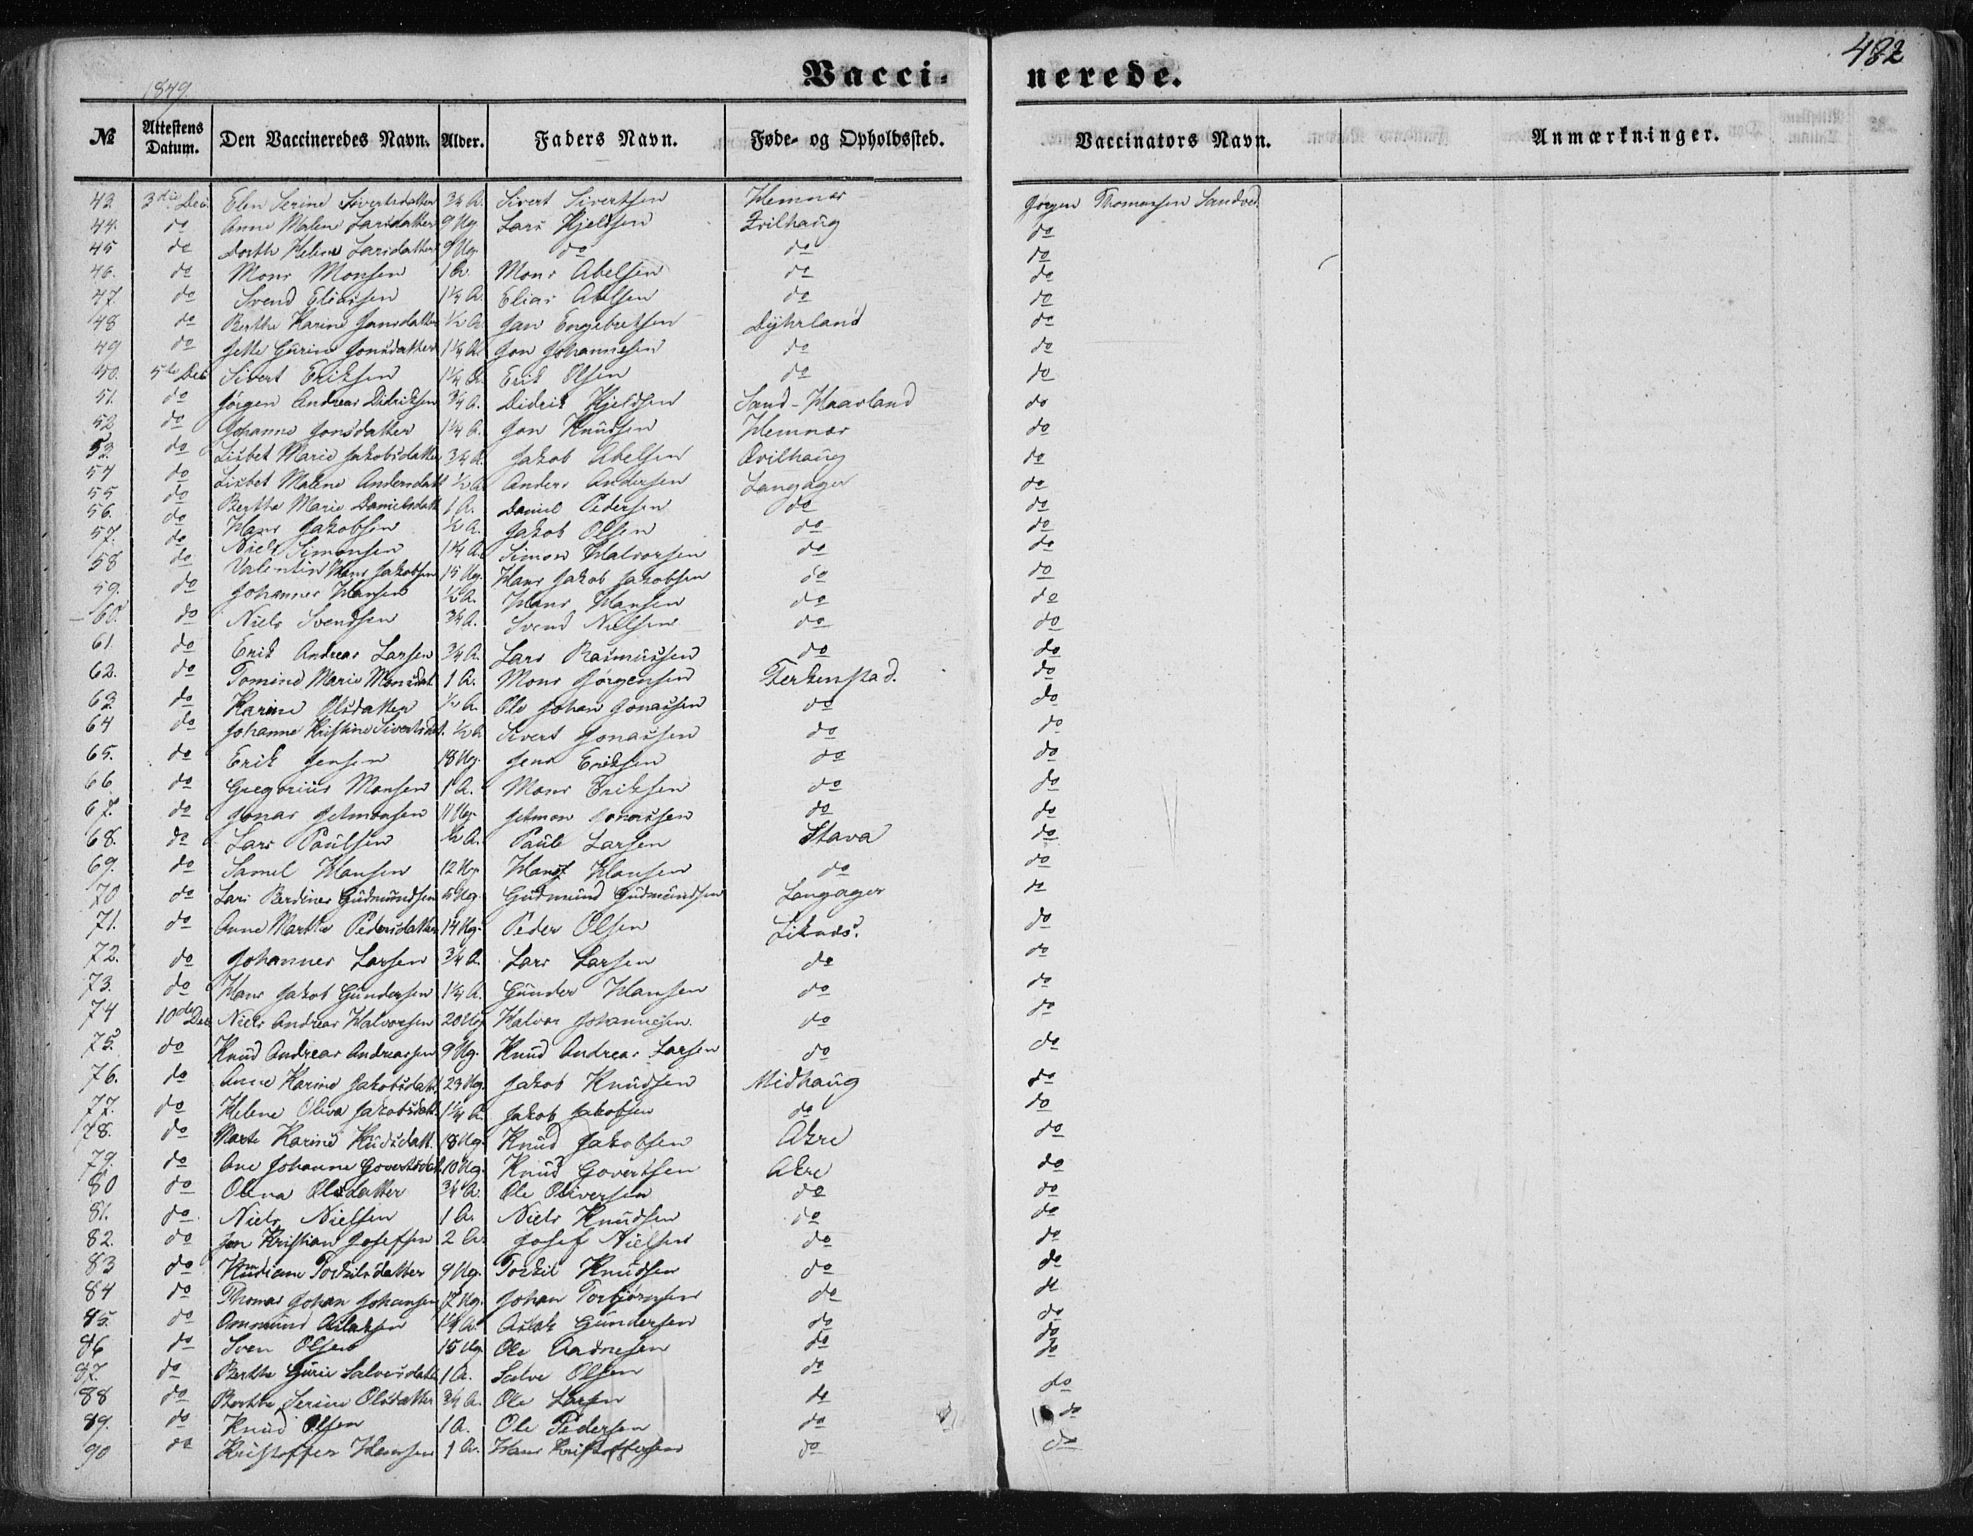 482
1849.
Vacci- nerede.
№ Attestens Datum. Den Vaccineredes Navn. Alder. Faders Navn. Føde- og Opholdssted. Vaccinators Navn. Anmærkninger.
43. 3die Dec. Elen Serine Sivertsdatter 3/4 A. Sivert Sivertsen Hemnæs Jørgen Thomassen Sandved
44. do Anne Malene Larsdatter 9 Ug Lars Kjeldsen Qvilhaug do
45 do Dorthe Helene Larsdatter 9 Ug. do do do
46. do Mons Monsen 1 A. Mons Abelsen do do
47. do Svend Eliassen 1 1/4 A. Elias Abelsen do do
48 do Berthe Karine Jansdatter 1/2 A. Jan Engebretsen Dyhrland do
49 do Jette Gurine Jonsdatter 1 1/4 A. Jon Johannesen do do
50. 5te Dec Sivert Eriksen 1 1/4 A. Erik Olsen do do
51. do Jørgen Andreas Didriksen 3/4 A. Didrik Kjeldsen Sand-Haarland do
52 do Johanne Jonsdatter 1 1/4 A. Jon Knudsen Hemnæs do
53. do Lisbet Marie Jakobsdatter 3/4 A. Jakob Abelsen Qvilhaug do
54 do Lisbet Malene Andersdatt 1/2 A. Anders Andersen Langager do
55 do Berthe Marie Danielsdatt 1 A. Daniel Pedersen do do
56. do Hans Jakobsen 1/2 A. Jakob Olsen do do
57. do Niels Simonsen 1 1/4 A. Simon Halvorsen do do
58 do Valentin Hans Jakobsen 15 Ug. Hans Jakob Jakobsen do do
59. do Johannes Hansen 1/2 A. Hans Hansen do do
60. do Niels Svendsen 3/4 A. Svend Nielsen do do
61. do Erik Andreas Larsen 3/4 A. Lars Rasmussen do do
62. do Tomine Marie Monsdat 1 A. Mons Jørgensen Ferkenstad. do
63 do Karine Olsdatter 1/2 A. Ole Johan Jonassen do do
64 do Johanne Kristine Sivertsdat. 1/2 A Sivert Jonassen do do
65. do Erik Jensen 18 Ug. Jens Eriksen do do
66 do Gregorius Monsen 1 A. Mons Eriksen do do
67. do Jonas Jetmonsen 11 Ug. Jetmon Jonassen do do
68. do Lars Paulsen 1/2 A. Paule Larsen Stava do
69. do Samel Hansen 12 Ug. Hans Hansen do do
70 do Lars Berdines Gudmundsen 5 Ug. Gudmund Gudmundsen Langager do
71. do Anne Marthe Pedersdatter 14 Ug. Peder Olsen Liknæs. do
72. do Johannes Larsen 3/4 A. Lars Larsen do do
73. do Hans Jakob Gundersen 1 1/4 A. Gunder Hansen do do
74 10de Dec Niels Andreas Halvorsen 20 Ug Halvor Johannesen. do do
75. do Knud Andreas Andreassen 9 Ug. Knud Andreas Larsen do do
76. do Anne Karine Jakobsdatt 23 Ug. Jakob Knudsen Midhaug do
77. do Helene Oliva Jakobsdatt. 1 1/4 A. Jakob Jakobsen do do
78. do Marte Karine Knudsdatt. 18 Ug. Knud Jakobsen Akre do
79. do Ane Johanne Govertsdat. 10 Ug. Knud Govertsen Akre do
80 do Olena Olsdatter 3/4 A. Ole Oliversen do do
81. do Niels Nielsen 1 A. Niels Knudsen do do
82. do Jon Kristian Josefsen 2 A. Josef Nielsen do do
83 do Torkilsdatter 9 Ug. Torkil Knudsen do do
84 do Thomas Johan Johansen 17 Ug. Johan Torbjørnsen do do
85. do Ommund Aslaksen 1 1/4 A. Aslak Gundersen do do
86 do Sven Olsen 15 Ug. Ole Andresen do do
87. do Berthe Gurie Salvesdatt 1 A. Salve Olsen do do
88 do Berthe Serine Olsdatter 3/4 A. Ole Larsen do do
89. do Knud Olsen 1 A. Ole Pedersen do do
90 do Kristoffer Hansen 1 A. Hans Kristoffersen do